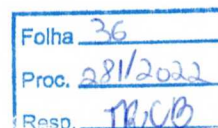 Folha 36
Proc. 281/2022
Resp.